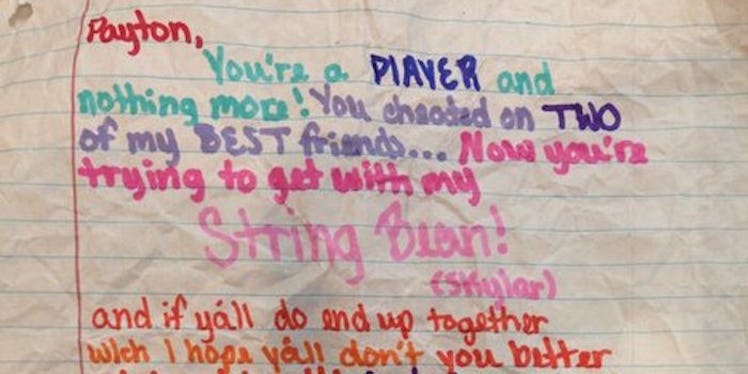 Payton,
You're a PlAYER and
nothing more! You cheated on TWO
of my BEST friends... Now you're
trying to get with my
String Bean!
(Skylar)
and if yáll do end up together
wich I hope yáll don't you better